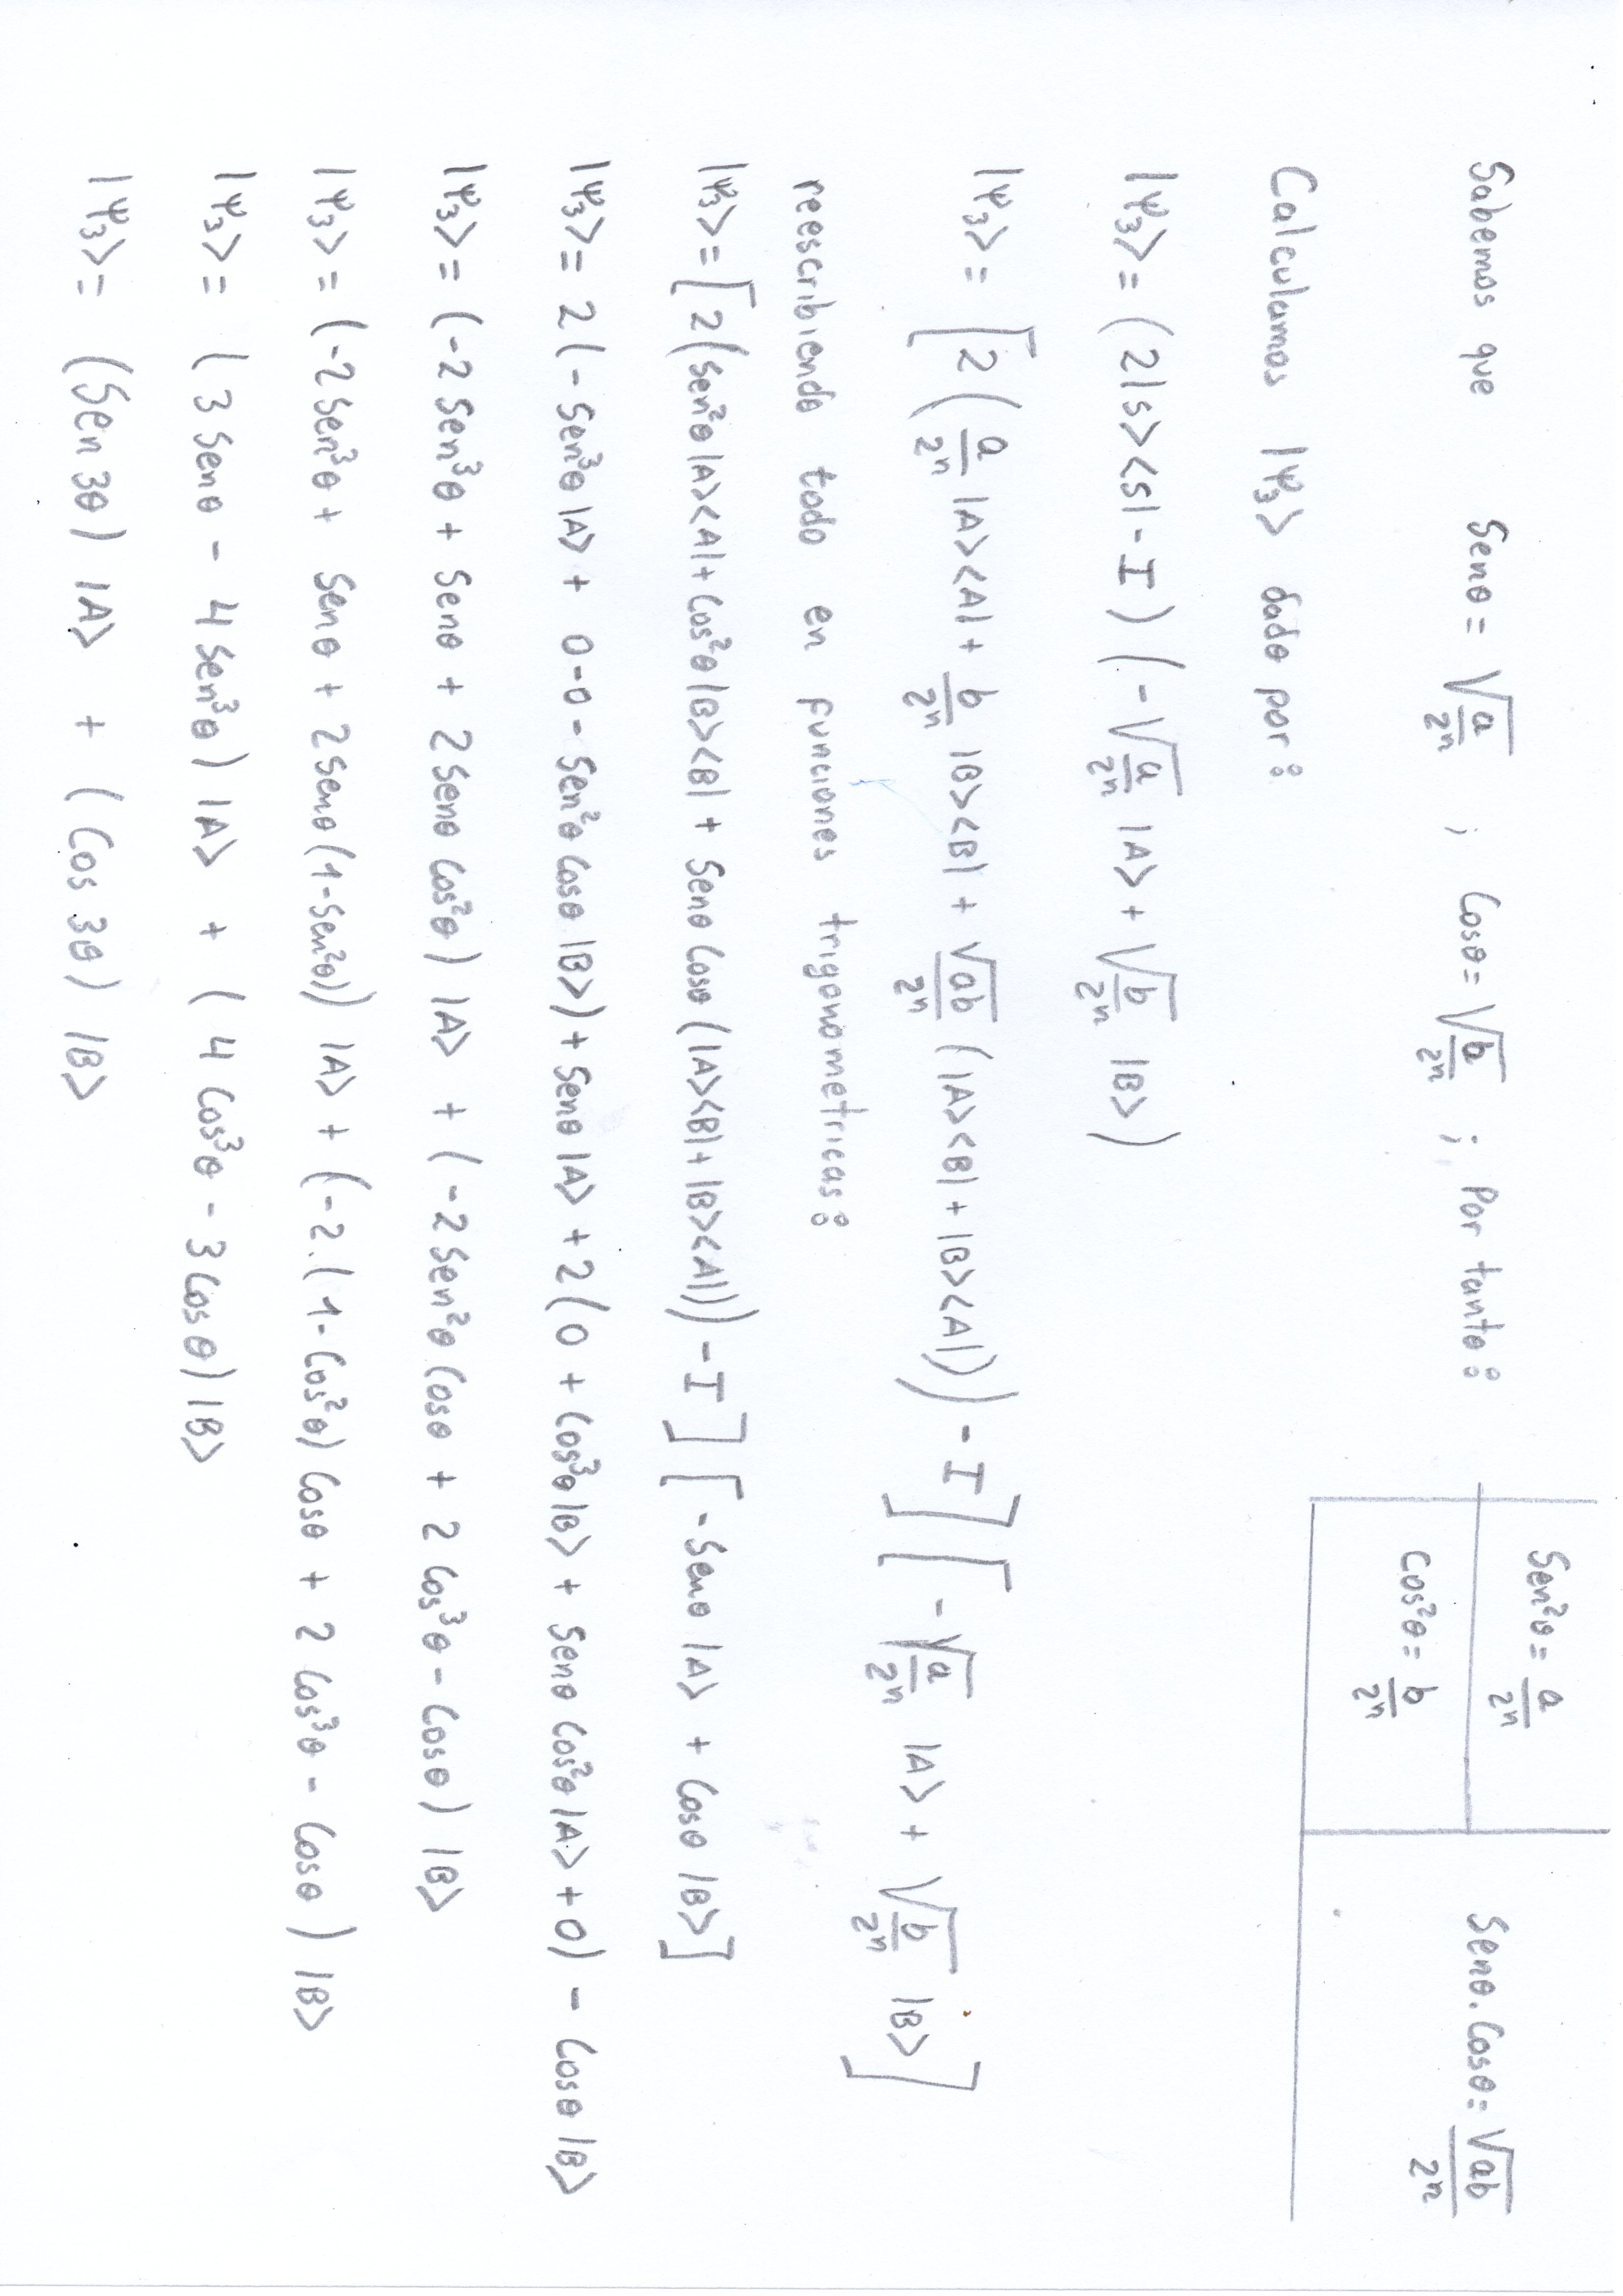 Sabemos que Senθ = √(a/2ⁿ) ; Cosθ = √(b/2ⁿ) ; Por tanto:
Sen²θ = a/2ⁿ
Cos²θ = b/2ⁿ
Senθ.Cosθ = √ab/2ⁿ
Calculamos |Ψ₃> dado por:
|Ψ₃> = (2|s><s| - I) (-√(a/2ⁿ) |A> + √(b/2ⁿ) |B>)
|Ψ₃> = [2(a/2ⁿ |A><A| + b/2ⁿ |B><B| + √ab/2ⁿ (|A><B| + |B><A|)) - I] [-√(a/2ⁿ) |A> + √(b/2ⁿ) |B>]
reescribiendo todo en funciones trigonometricas:
|Ψ₃> = [2(Sen²θ |A><A| + Cos²θ |B><B| + Senθ Cosθ (|A><B| + |B><A|)) - I] [-Senθ |A> + Cosθ |B>]
|Ψ₃> = 2(-Sen³θ |A> + 0-0- Sen²θ Cosθ |B>) + Senθ |A> + 2(0 + Cos³θ |B> + Senθ Cos²θ |A> + 0) - Cosθ |B>
|Ψ₃> = (-2 Sen³θ + Senθ + 2 Senθ Cos²θ) |A> + (-2 Sen²θ Cosθ + 2 Cos³θ - Cosθ) |B>
|Ψ₃> = (-2 Sen³θ + Senθ + 2 Senθ (1-Sen²θ)) |A> + (-2.(1-Cos²θ) Cosθ + 2 Cos³θ - Cosθ) |B>
|Ψ₃> = (3 Senθ - 4 Sen³θ) |A> + (4 Cos³θ - 3 Cosθ) |B>
|Ψ₃> = (Sen 3θ) |A> + (Cos 3θ) |B>